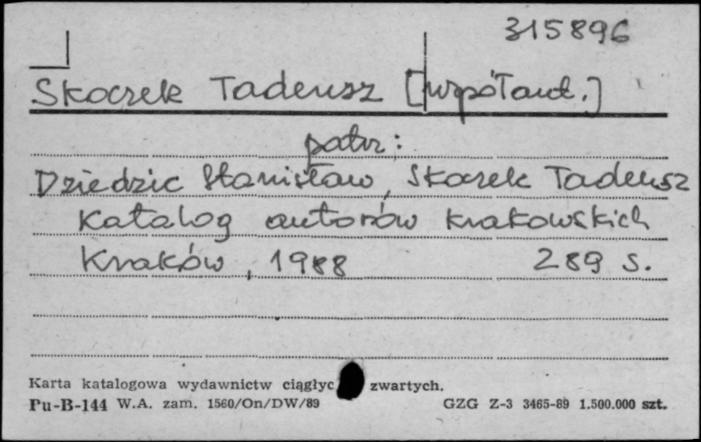 315896
Skoczek Tadeusz [współaut.]
patrz:
Dziedzic Stanisław, Skoczek Tadeusz
Katalog autorów krakowskich
Kraków, 1988 289 s.
Karta katalogowa wydawnictw ciągłyc zwartych.
Pu-B-144 W.A. zam. 1560/On/DW/89 GZG Z-3 3465-89 1.500.000 szt.